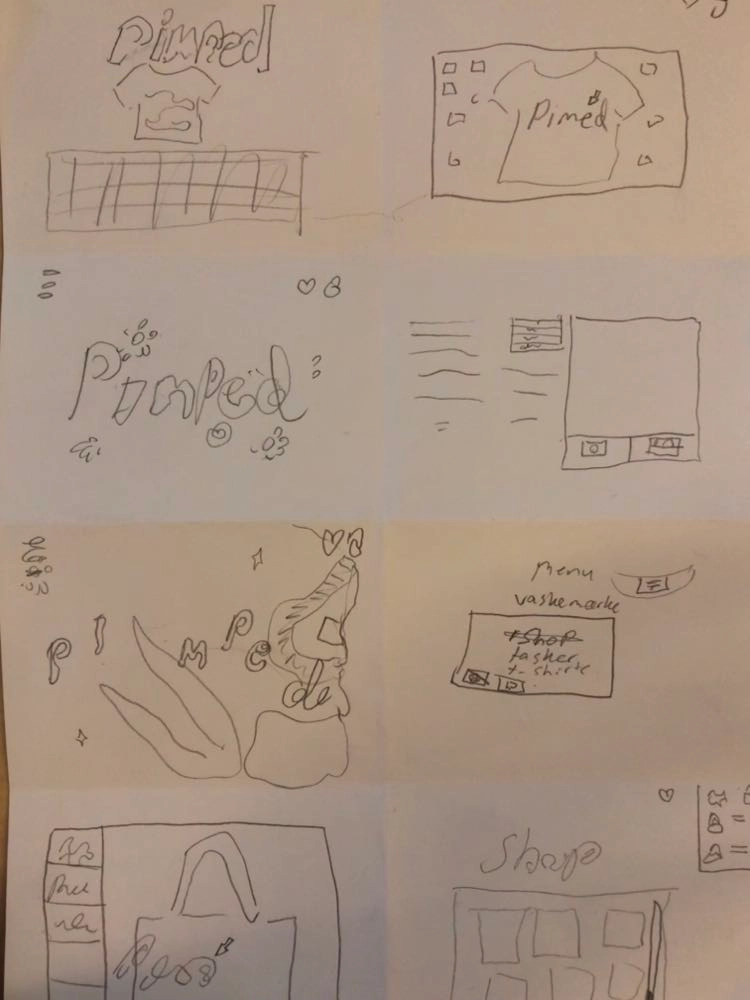 Pimped
Pimed
Pimped
P I M P e d
menu
vaskemærke
Shop
tasker
t-shirts
Shop